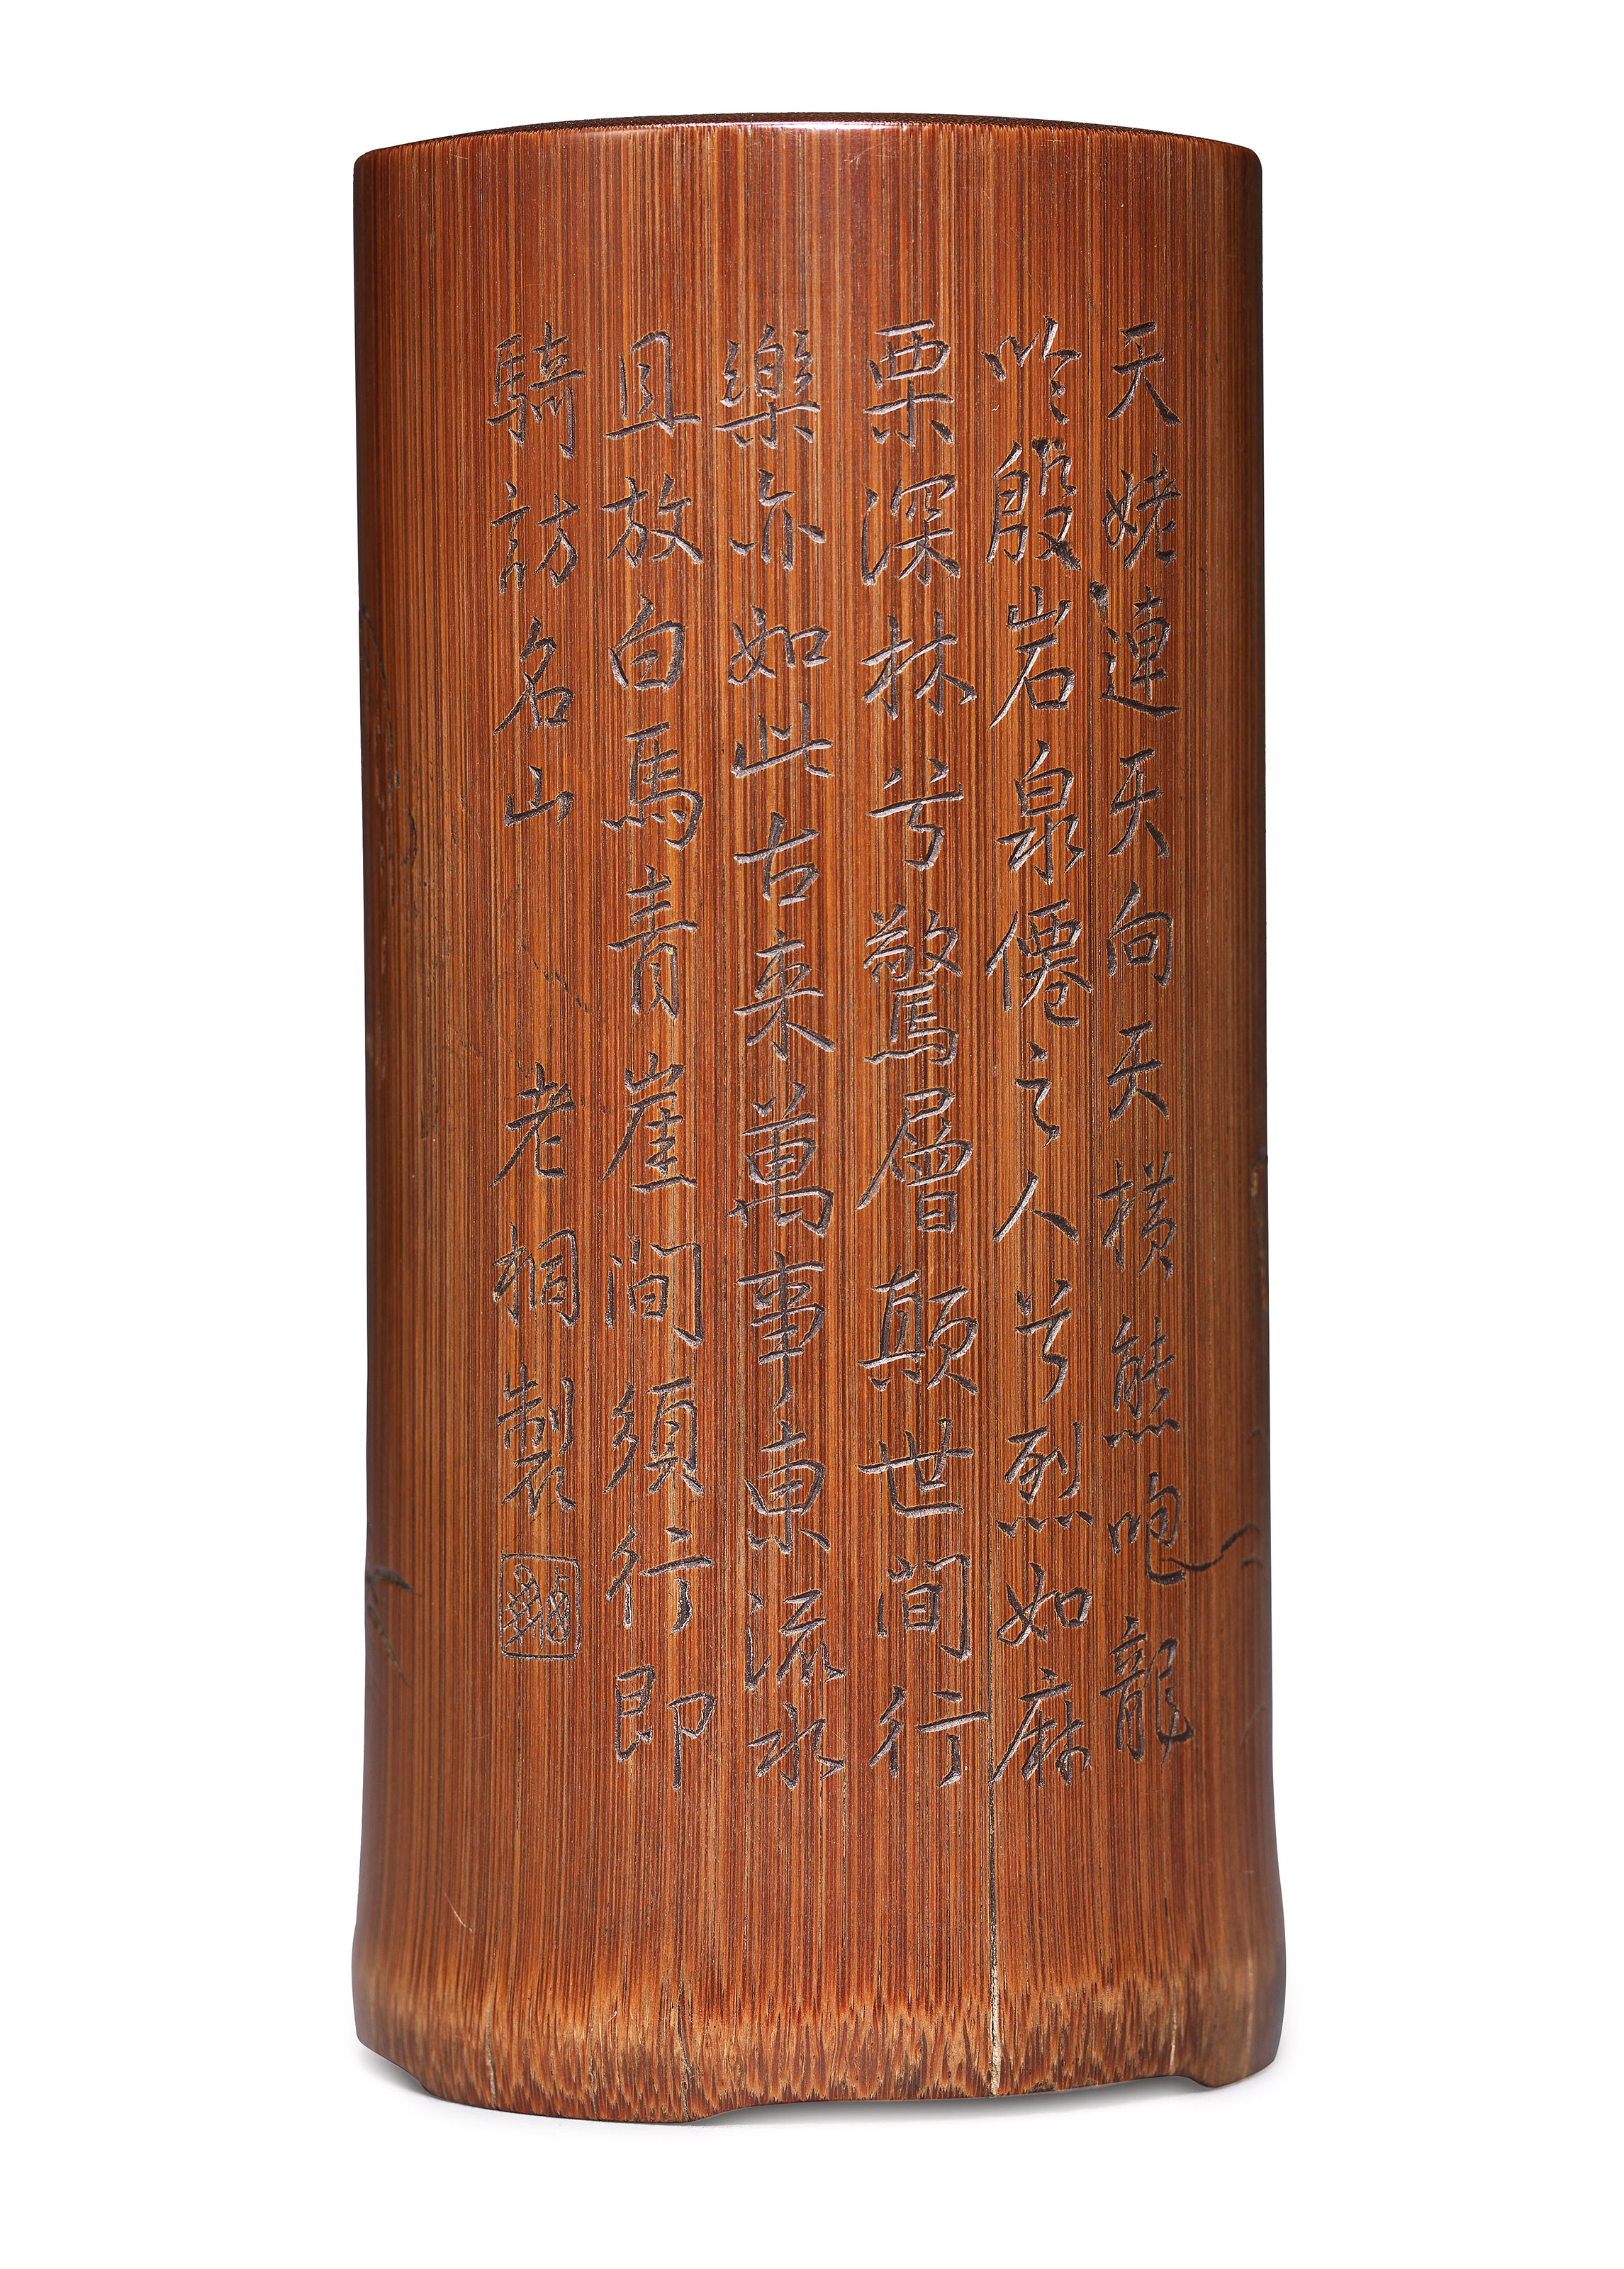 天姥連天向天橫熊咆龍
吟殷岩泉僊之人兮烈如麻
栗深林兮驚層顛世間行
樂亦如此古来萬事東流水
且放白馬青崖间須行即
騎訪名山 老桐製